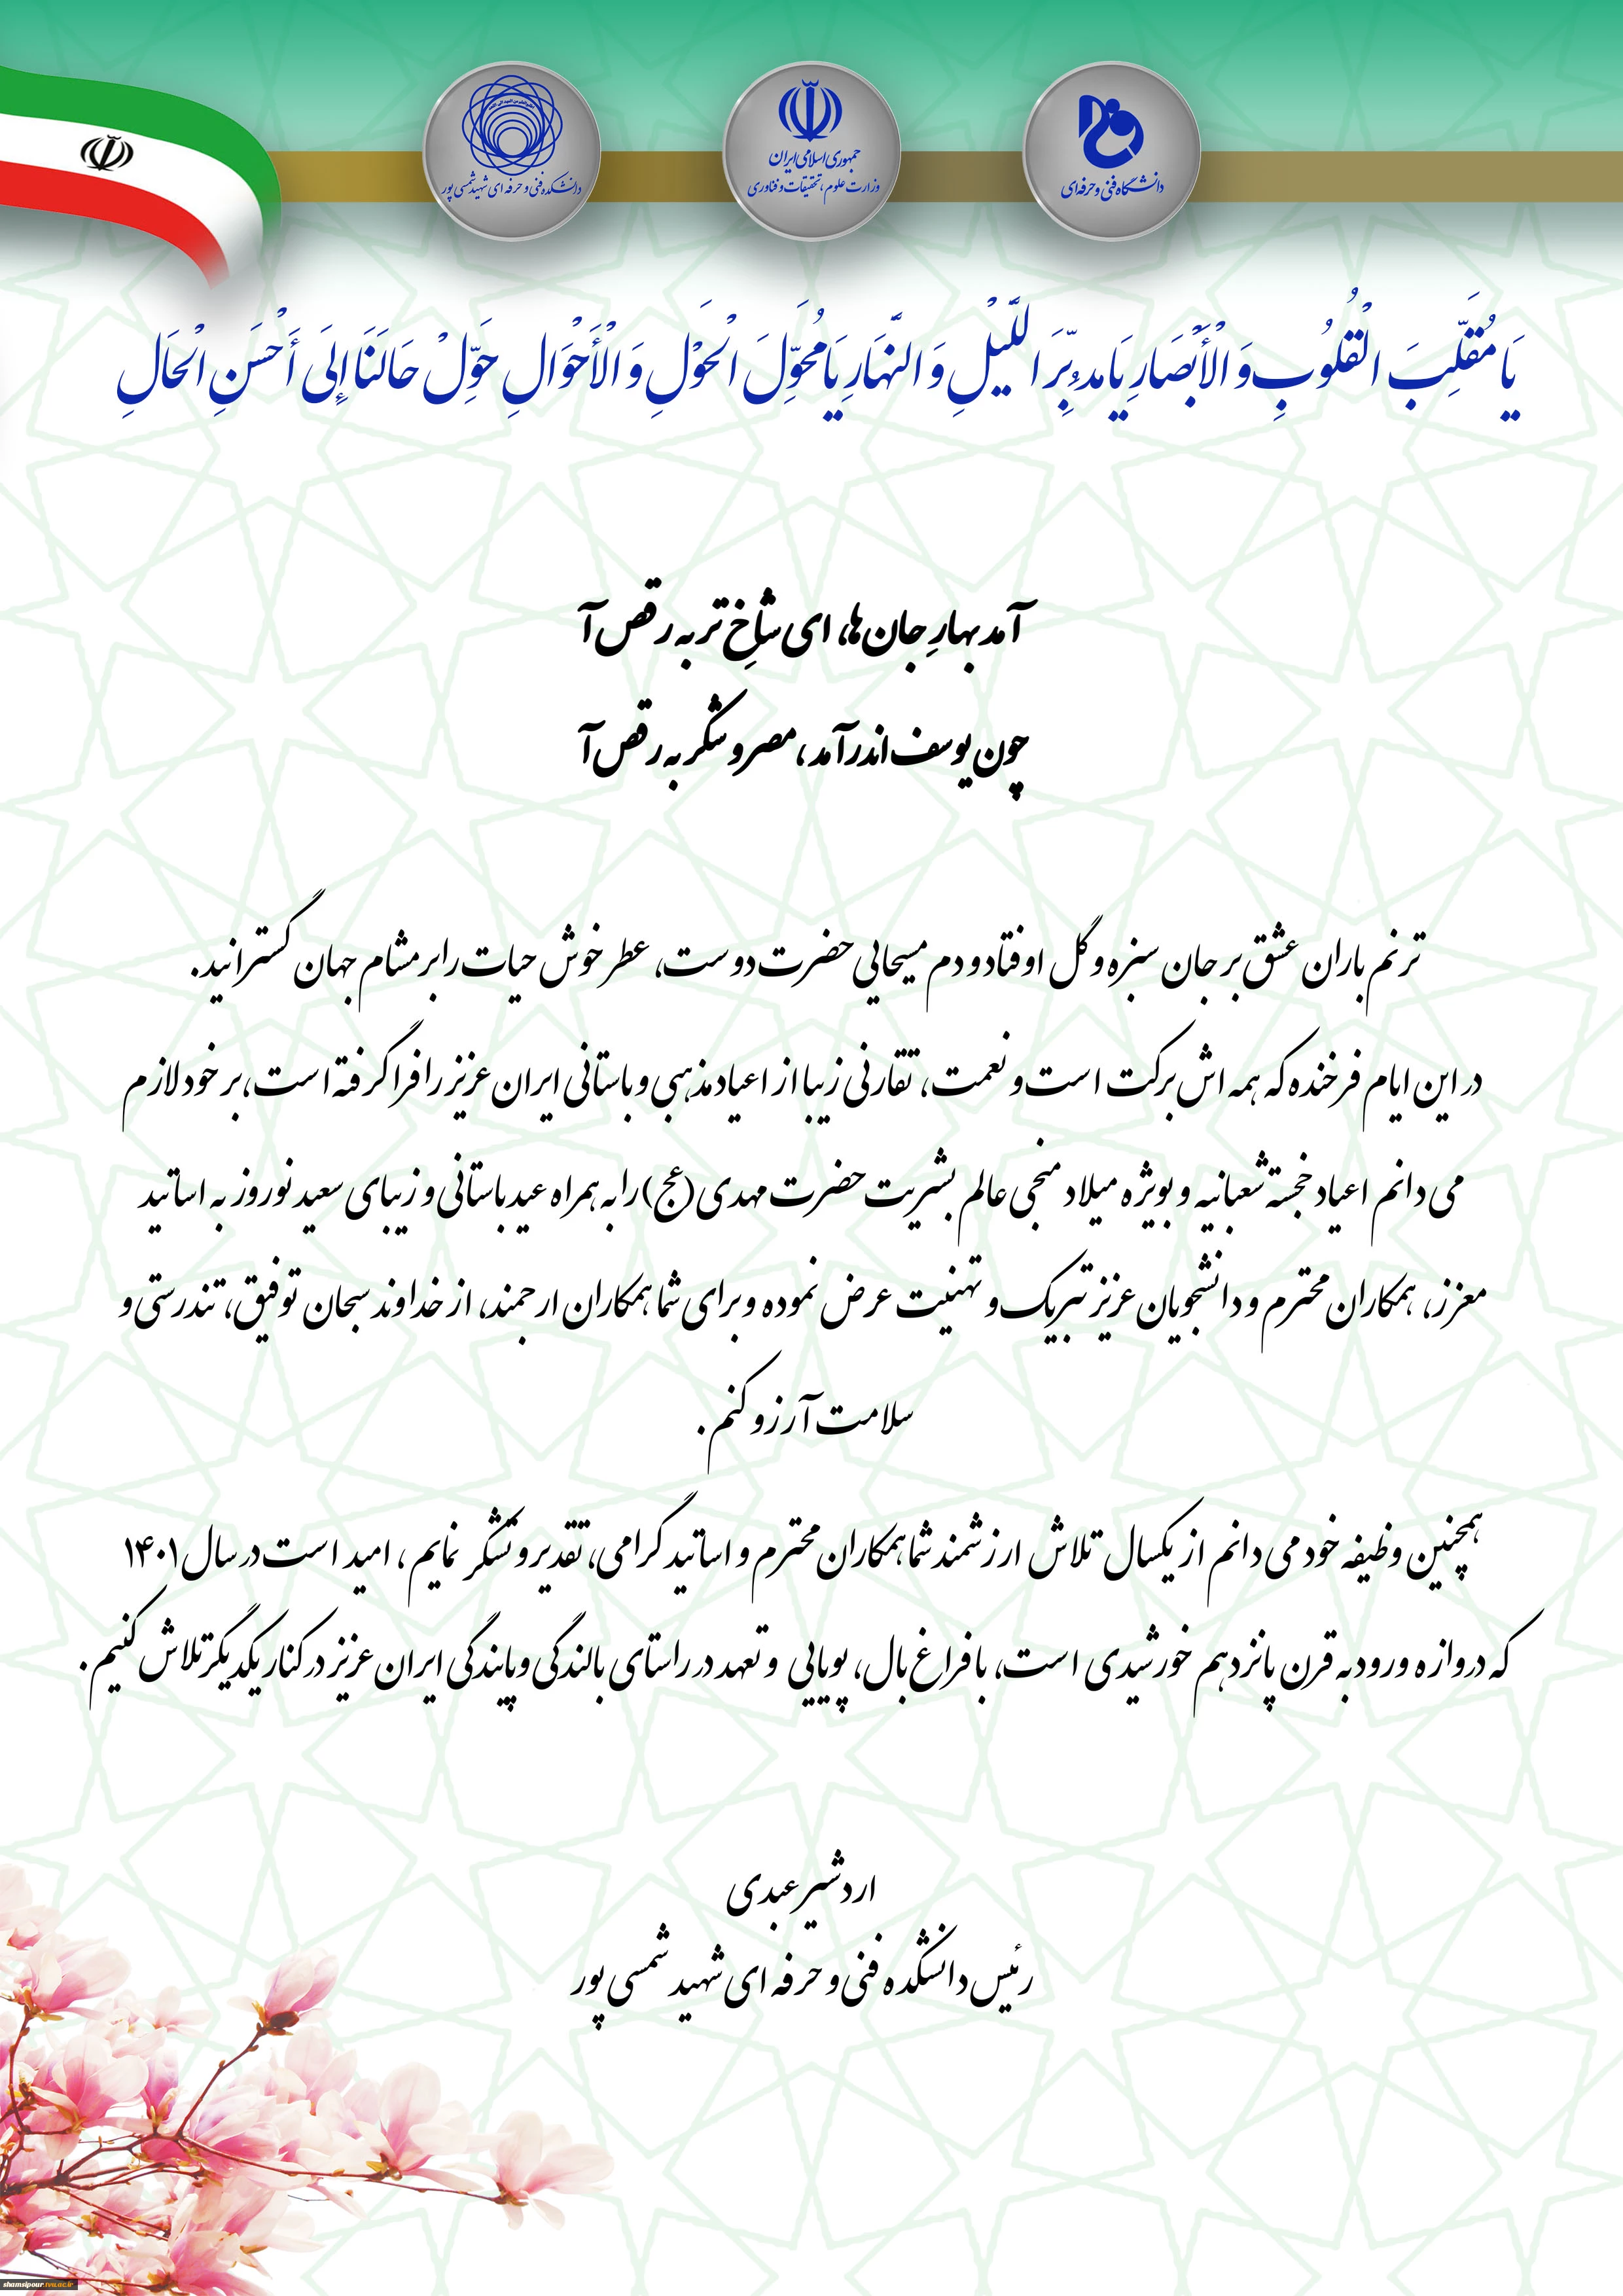 دانشگاه فنی و حرفه‌ای
جمهوری اسلامی ایران
وزارت علوم، تحقیقات و فناوری
دانشکده فنی و حرفه ای شهید شمسی پور
یَا مُقَلِّبَ الْقُلُوبِ وَ الْأَبْصَارِ یَا مدبِّرَ اللَّیْلِ وَ النَّهَارِ یَا مُحَوِّلَ الْحَوْلِ وَ الْأَحْوَالِ حَوِّلْ حَالَنَا إِلَی أَحْسَنِ الْحَالِ
آمد بهارِ جان‌ها، ای شاخِ تر به رقص آ
چون یوسف اندر آمد، مصر و شکر به رقص آ
ترنم باران عشق بر جان سبزه و گل اوفتاد و دم مسیحایی حضرت دوست، عطر خوش حیات را بر مشام جهان گسترانید.
در این ایام فرخنده که همه اش برکت است و نعمت، تقارنی زیبا از اعیاد مذهبی و باستانی ایران عزیز را فرا گرفته است، بر خود لازم
می دانم اعیاد خجسته شعبانیه و بویژه میلاد منجی عالم بشریت حضرت مهدی (عج) را به همراه عید باستانی و زیبای سعید نوروز به اساتید
معزز، همکاران محترم و دانشجویان عزیز تبریک و تهنیت عرض نموده و برای شما همکاران ارجمند، از خداوند سبحان توفیق، تندرستی و
سلامت آرزو کنم.
همچنین وظیفه خود می دانم از یکسال تلاش ارزشمند شما همکاران محترم و اساتید گرامی، تقدیر و تشکر نمایم، امید است در سال ۱۴۰۱
که دروازه ورود به قرن پانزدهم خورشیدی است، با فراغ بال، پویایی و تعهد در راستای بالندگی و پایندگی ایران عزیز در کنار یکدیگر تلاش کنیم.
اردشیر عبدی
رئیس دانشکده فنی و حرفه ای شهید شمسی پور
shamsipour.tvu.ac.ir